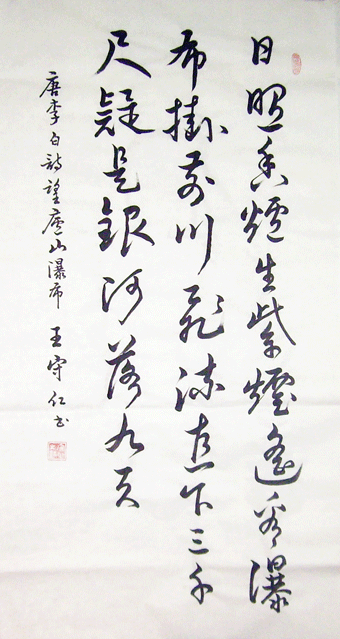 日照香爐生紫煙遙看瀑
布掛前川飛流直下三千
尺疑是銀河落九天
唐李白詩望廬山瀑布 王守仁書